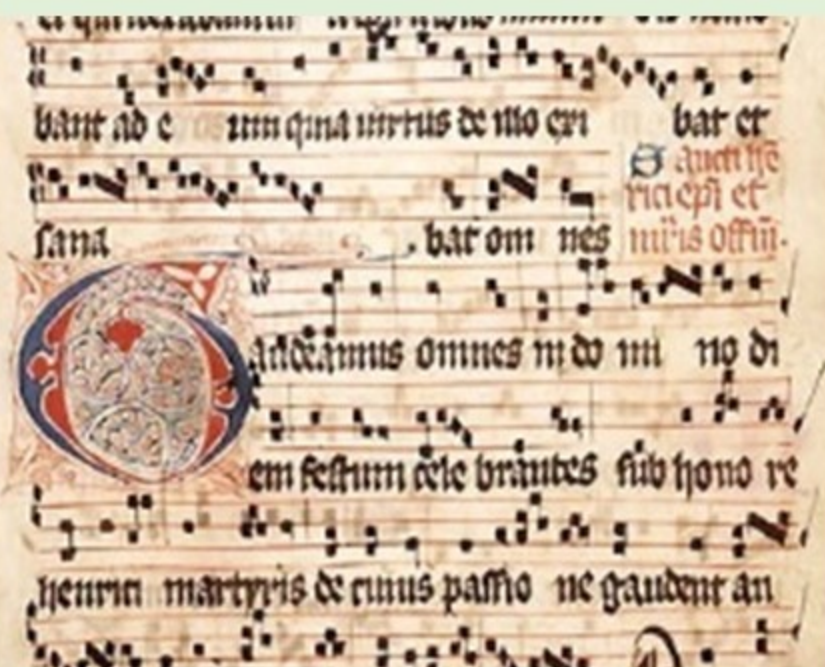 bant ad e um quia uirtus de illo exi bat et
Sancti hē
rici epi et
sana bat om nes
mr̄is offm̄.
Gaudeamus omnes in do mi no di
em festum cele brantes sub hono re
henrici martyris de cuius passio ne gaudent an